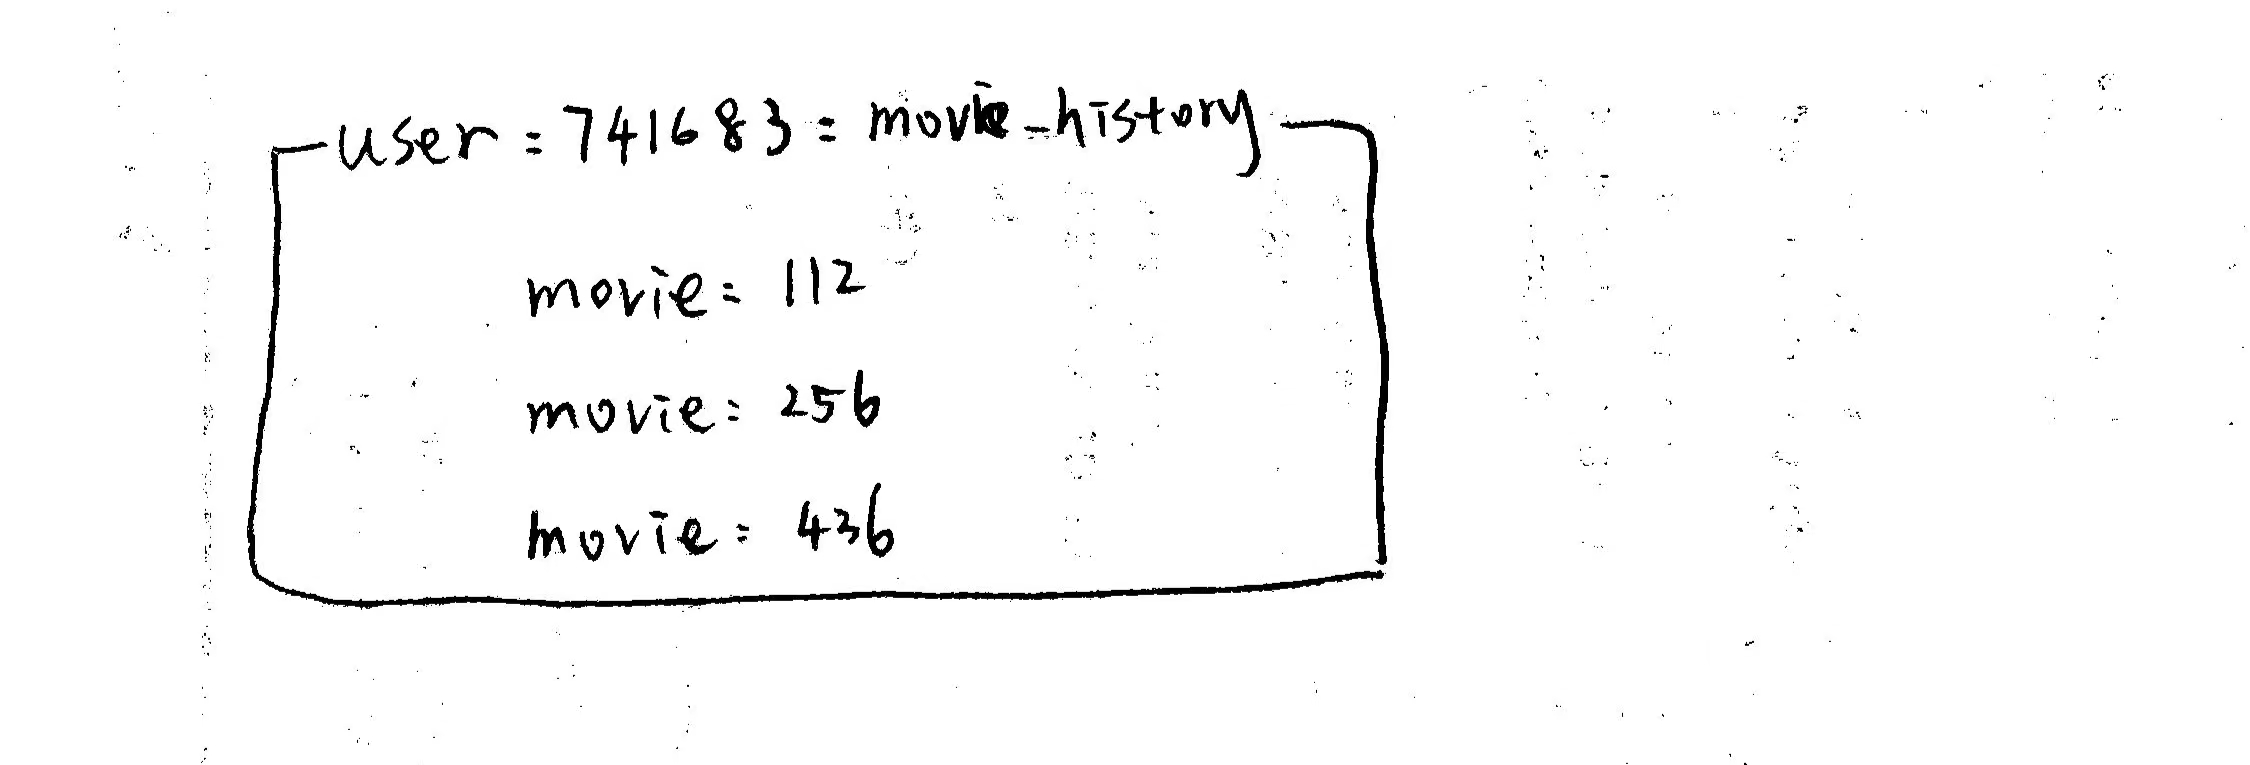 user:741683:movie-history
movie: 112
movie: 256
movie: 436